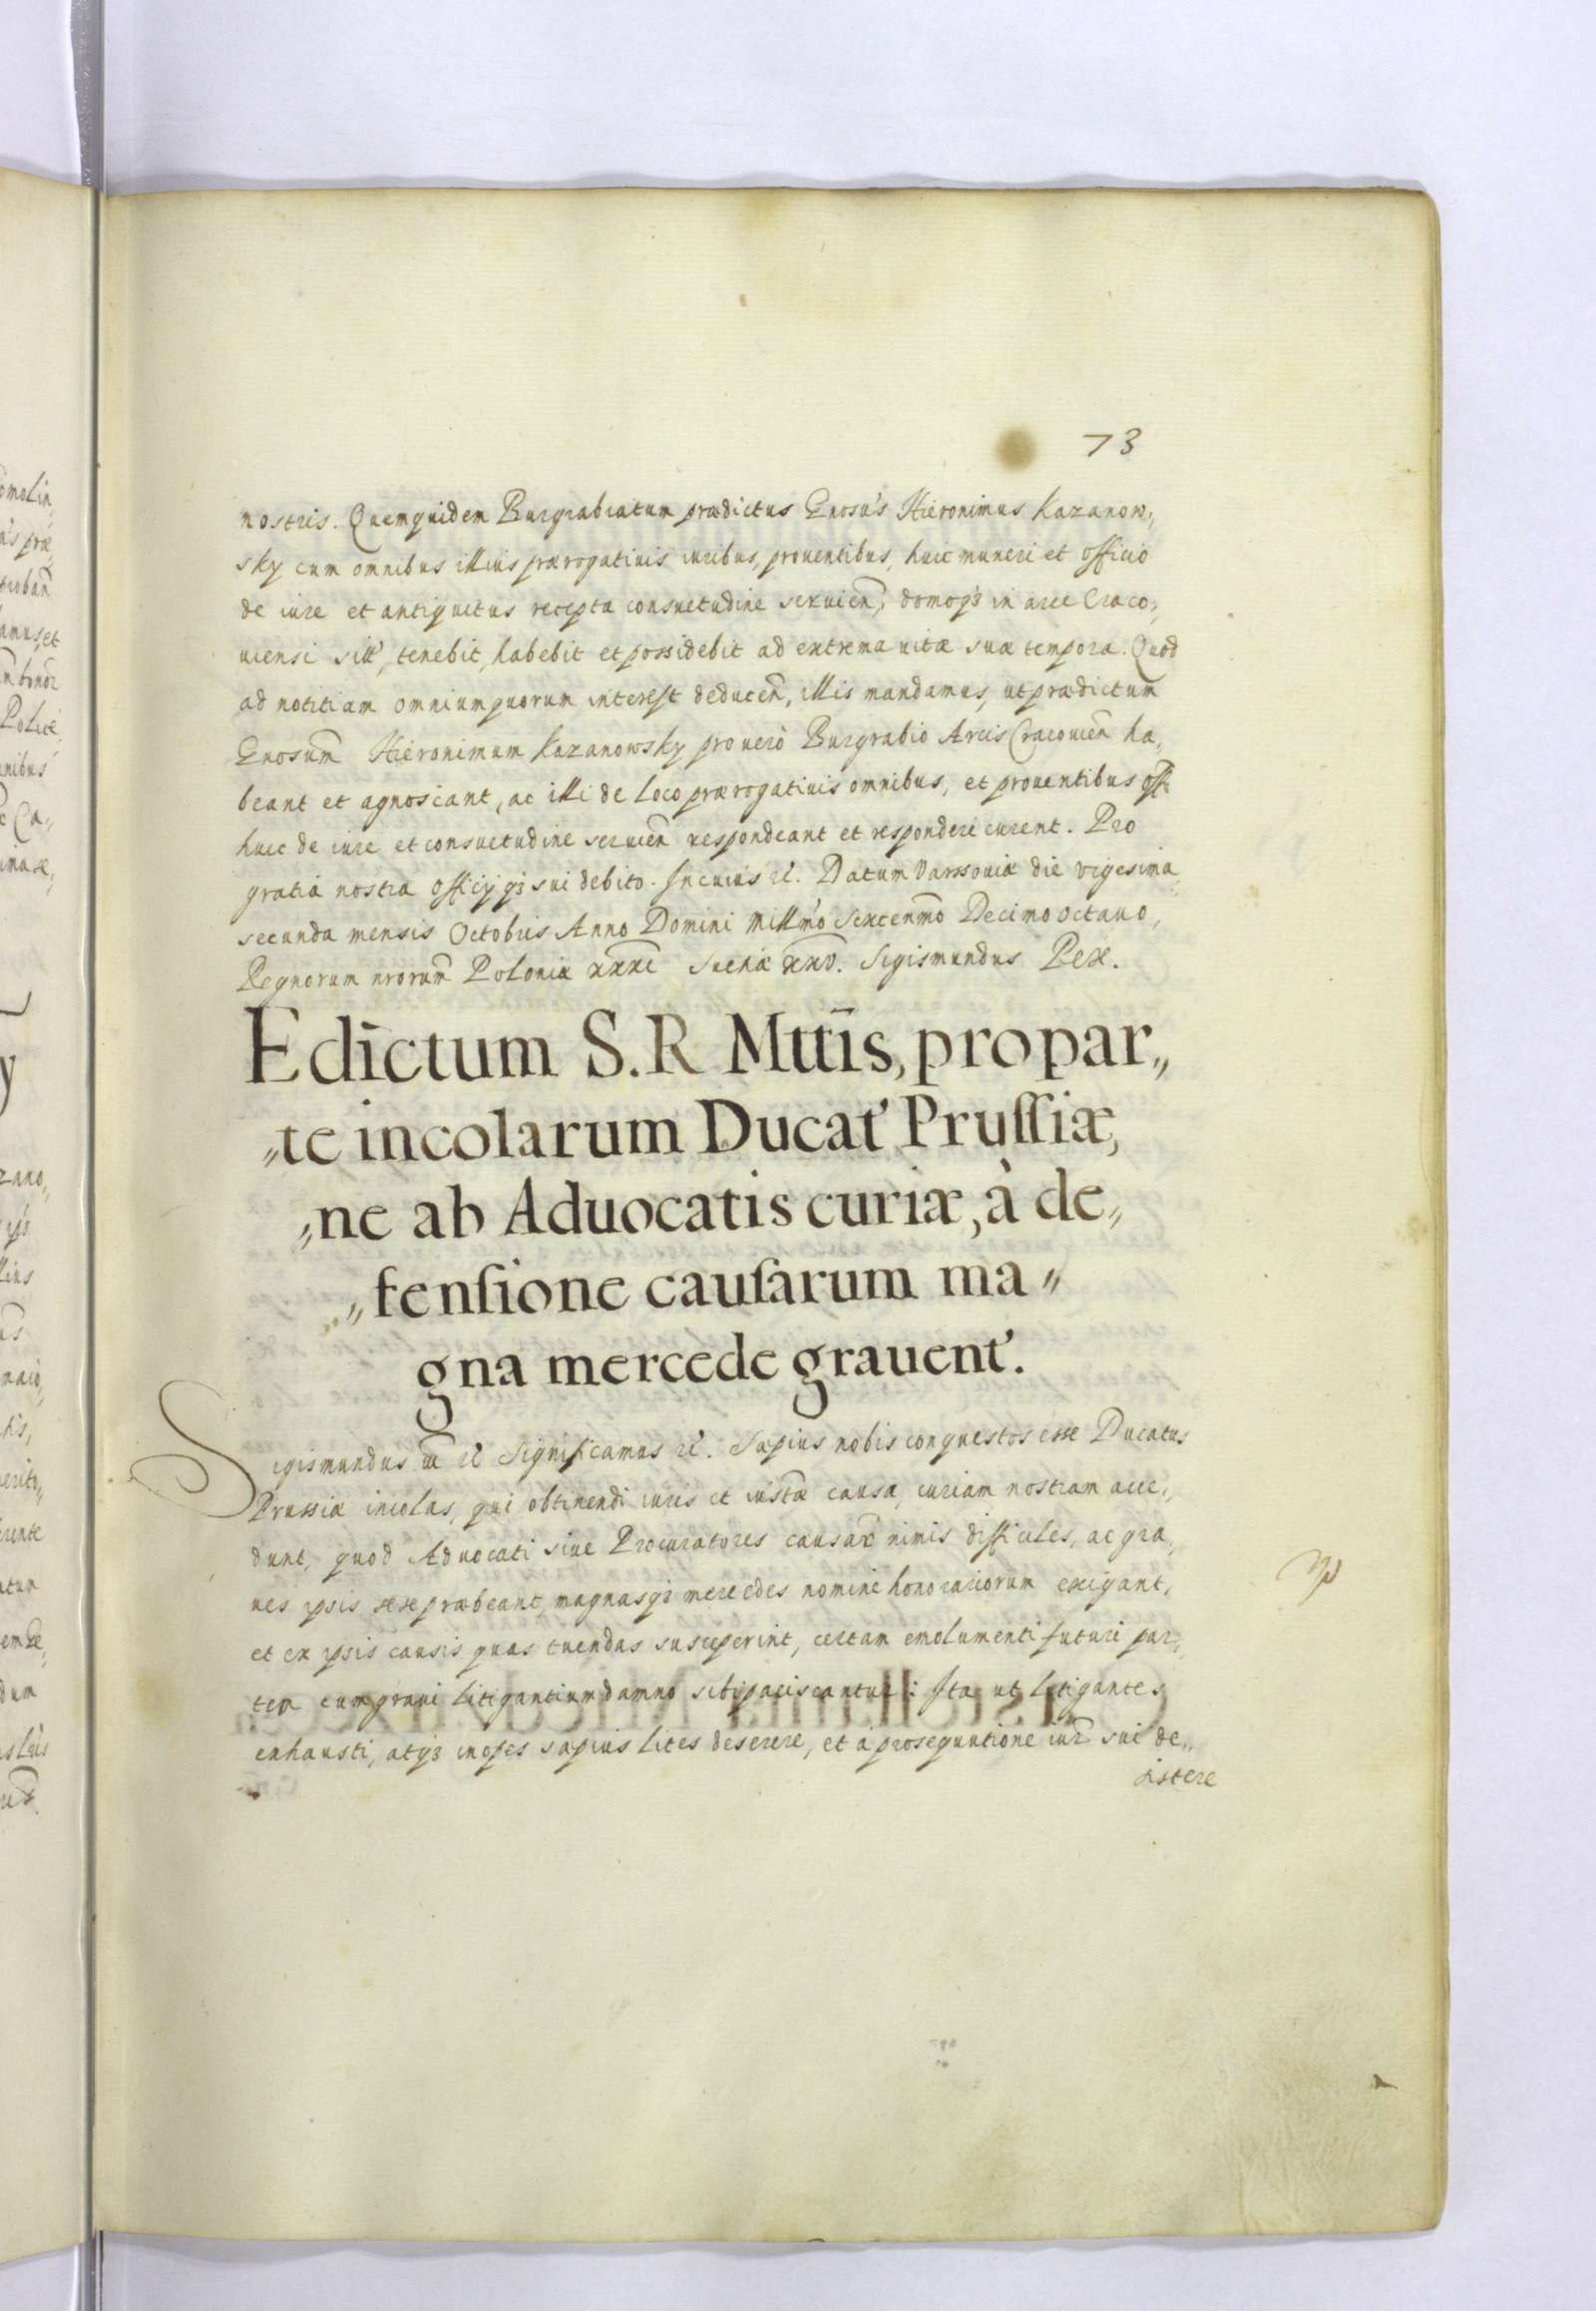 73
nostris. Quemquidem Burgrabiatum prædictus Gnosus Hieronimus Kazanow,,
sky cum omnibus illius prærogatiuis iuribus, prouentibus, huic muneri et officio
de iure et antiquitus recepta consuetudine seruien, domoq3 in arce Craco,,
uiensi tenebit, habebit et possidebit ad extrema uitæ suæ tempora. Quod
ad notitiam omnium quorum interest deducen, illis mandamus, ut prædictum
Gnosum Hieronimum Kazanowsky pro uero Burgrabio Arcis Cracouien ha,,
beant et agnoscant, ac illi de loco prærogatiuis omnibus, et prouentibus offi
huic de iure et consuetudine seruien respondeant et responderi curent. Pro
gratia nostra officij q3 sui debito. In cuius rẻ. Datum Varssouiæ die vigesima
secunda mensis Octobris Anno Domini Millmo Sexcenmo Decimo octauo,
Regnorum nrorum Poloniæ xxxi Sueciæ xxv. Sigismundus Rex.
Edictum S.R Mttis, pro par,,
,,te incolarum Ducat' Prussiæ,
,,ne ab Aduocatis curiæ, à de,,
,,fensione causarum ma,,
gna mercede grauent'.
Sigismundus iii rẻ Significamus rẻ. Sæpius nobis conquestos esse Ducatus
Prussiæ incolas, qui obtinendi iuris et iustæ causa, curiam nostram acce,,
dunt, quod Aduocati siue Procuratores causar nimis difficiles, ac gra,,
ues ipsis sese præbeant, magnasq3 mercedes nomine honorariorum exigant,
et ex ipsis causis quas tuendas susceperint, certam emolumenti futuri par,,
tem cum graui litigantium damno sibi paciscantur: Ita ut litigantes
exhausti, atq3 inopes sæpius lites deserere, et à prosequutione iur sui de,,
sistere